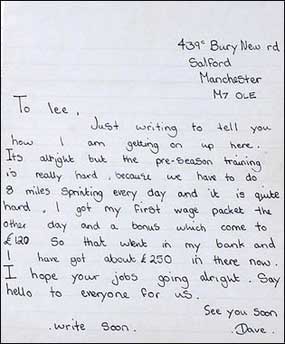 439c Bury New rd
Salford
Manchester
M7 OLE
To lee,
Just writing to tell you
how I am getting on up here.
Its alright but the pre-season training
is really hard, because we have to do
8 miles sprinting every day and it is quite
hard, I got my first wage packet the
other day and a bonus which come to
£120 So that went in my bank and
I have got about £250 in there now.
I hope your jobs going alright. Say
hello to everyone for us.
See you soon
.write soon. .Dave.